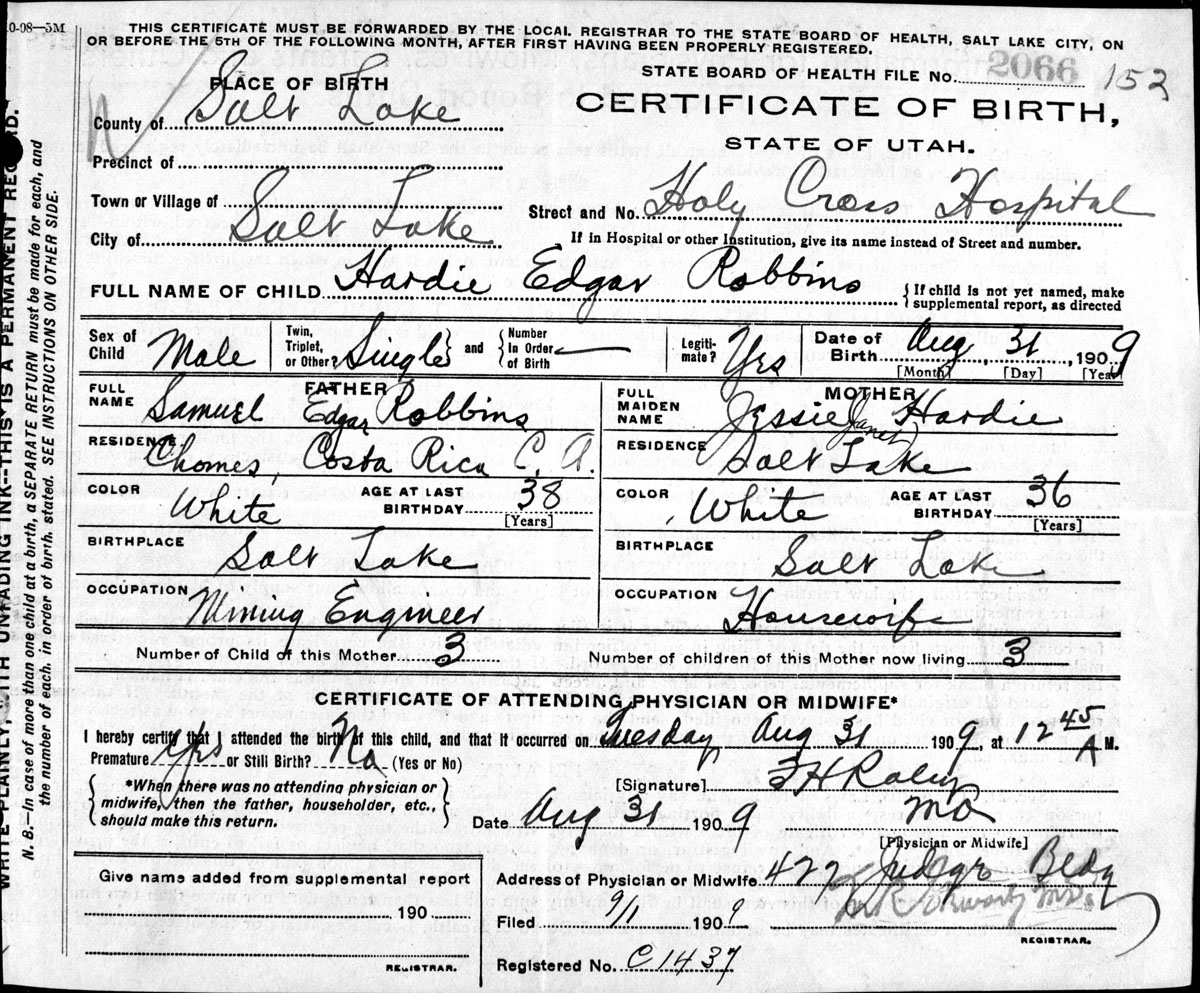 0-08—5M
THIS CERTIFICATE MUST BE FORWARDED BY THE LOCAL REGISTRAR TO THE STATE BOARD OF HEALTH, SALT LAKE CITY, ON
OR BEFORE THE 5TH OF THE FOLLOWING MONTH, AFTER FIRST HAVING BEEN PROPERLY REGISTERED.
STATE BOARD OF HEALTH FILE No. 2066 152
PLACE OF BIRTH
CERTIFICATE OF BIRTH,
STATE OF UTAH.
County of Salt Lake
Precinct of
Town or Village of
City of Salt Lake
Street and No. Holy Cross Hospital
If in Hospital or other Institution, give its name instead of Street and number.
FULL NAME OF CHILD Hardie Edgar Robbins
{If child is not yet named, make
supplemental report, as directed
Sex of Child Male
Twin, Triplet, or Other? Single} and {Number In Order of Birth
Legiti-mate? Yes
Date of Birth Aug, 31, 1909
[Month] [Day] [Year]
FATHER
FULL NAME Samuel Edgar Robbins
RESIDENCE Chomes, Costa Rica C. A.
COLOR White AGE AT LAST BIRTHDAY 38 [Years]
BIRTHPLACE Salt Lake
OCCUPATION Mining Engineer
MOTHER
FULL MAIDEN NAME Jessie (Janet) Hardie
RESIDENCE Salt Lake
COLOR White AGE AT LAST BIRTHDAY 36 [Years]
BIRTHPLACE Salt Lake
OCCUPATION Housewife
Number of Child of this Mother 3 Number of children of this Mother now living 3
CERTIFICATE OF ATTENDING PHYSICIAN OR MIDWIFE*
I hereby certify that I attended the birth of this child, and that it occurred on Tuesday Aug 31 1909, at 12 45 A M.
Premature Yes or Still Birth? No (Yes or No)
{*When there was no attending physician or
midwife, then the father, householder, etc.,
should make this return.}
[Signature] F H Raley
MD
[Physician or Midwife]
Date Aug 31 1909
Give name added from supplemental report
190
REGISTRAR.
Address of Physician or Midwife 422 Judge Bldg
Filed 9/1 1909
REGISTRAR.
Registered No. C1437
WRITE PLAINLY, WITH UNFADING INK--THIS IS A PERMANENT RECORD.
N. B.—In case of more than one child at a birth, a SEPARATE RETURN must be made for each, and
the number of each, in order of birth, stated. SEE INSTRUCTIONS ON OTHER SIDE.